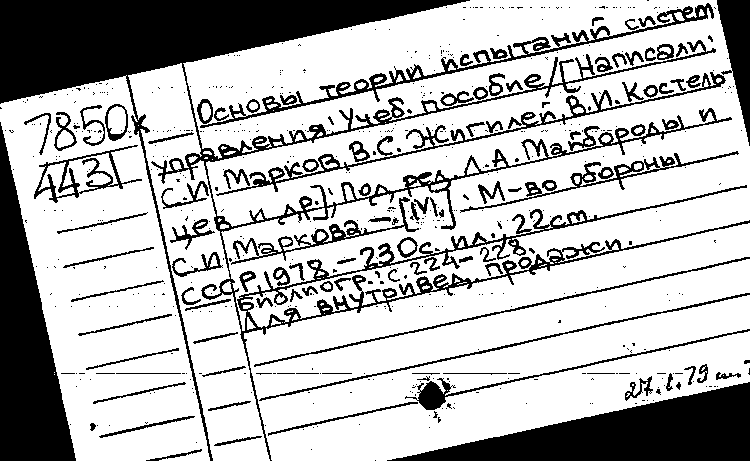 78-50к
4431
Основы теории испытаний систем
управления: Учеб. пособие / [Написали:
С.И. Марков, В.С. Жигилей, В.И. Костель-
цев и др.]; Под ред. Л.А. Майбороды и
С.И. Маркова. - [М.]: М-во обороны
СССР, 1978. - 230с. ил.; 22см.
Библиогр.: с. 224-228.
Для внутривед. продажи.
27.1.79